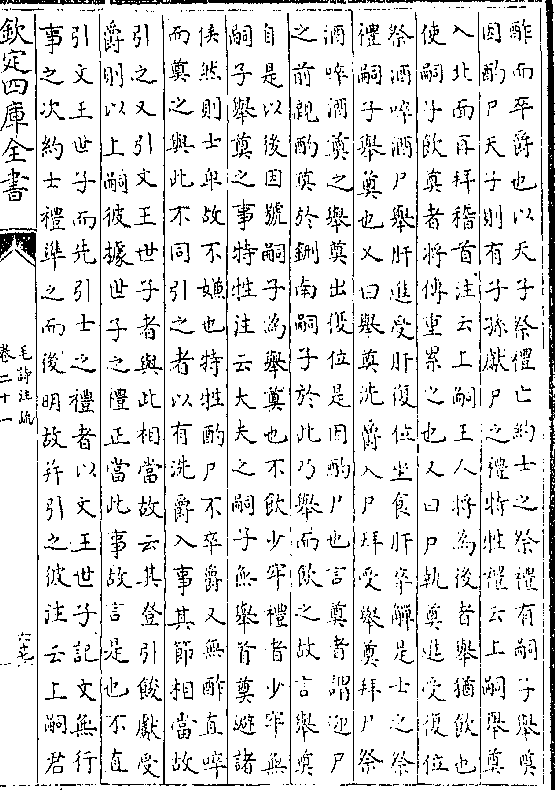 酢而卒爵也以天子祭禮亡約士之祭禮有嗣子舉奠
因酌尸天子則有子孫獻尸之禮特牲禮云上嗣舉奠
入北面再拜稽首注云上嗣王人將為後者舉猶飲也
使嗣子飲奠者將傳重累之也又曰尸執奠進受復位
祭酒啐酒尸舉肝進受肝復位坐食肝卒觶是士之祭
禮嗣子舉奠也又曰舉奠洗爵入尸拜受舉奠拜尸祭
酒啐酒奠之舉奠出復位是因酌尸也言奠者謂迎尸
之前祝酌奠於鉶南嗣子於此乃舉而飲之故言舉奠
自是以後因號嗣子為舉奠也不飲少牢禮者少牢無
嗣子舉奠之事特牲注云大夫之嗣子無舉首奠避諸
侯然則士卑故不嫌也特牲酌尸不卒爵又無酢直啐
而奠之與此不同引之者以有洗爵入事其節相當故
引之又引文王世子者與此相當故云其登引餕獻受
爵則以上嗣彼據世子之禮正當此事故言是也不直
引文王世子而先引士之禮者以文王世子記文無行
事之次約士禮準之而後明故并引之彼注云上嗣君
欽定四庫全書
毛詩注疏
卷二十一